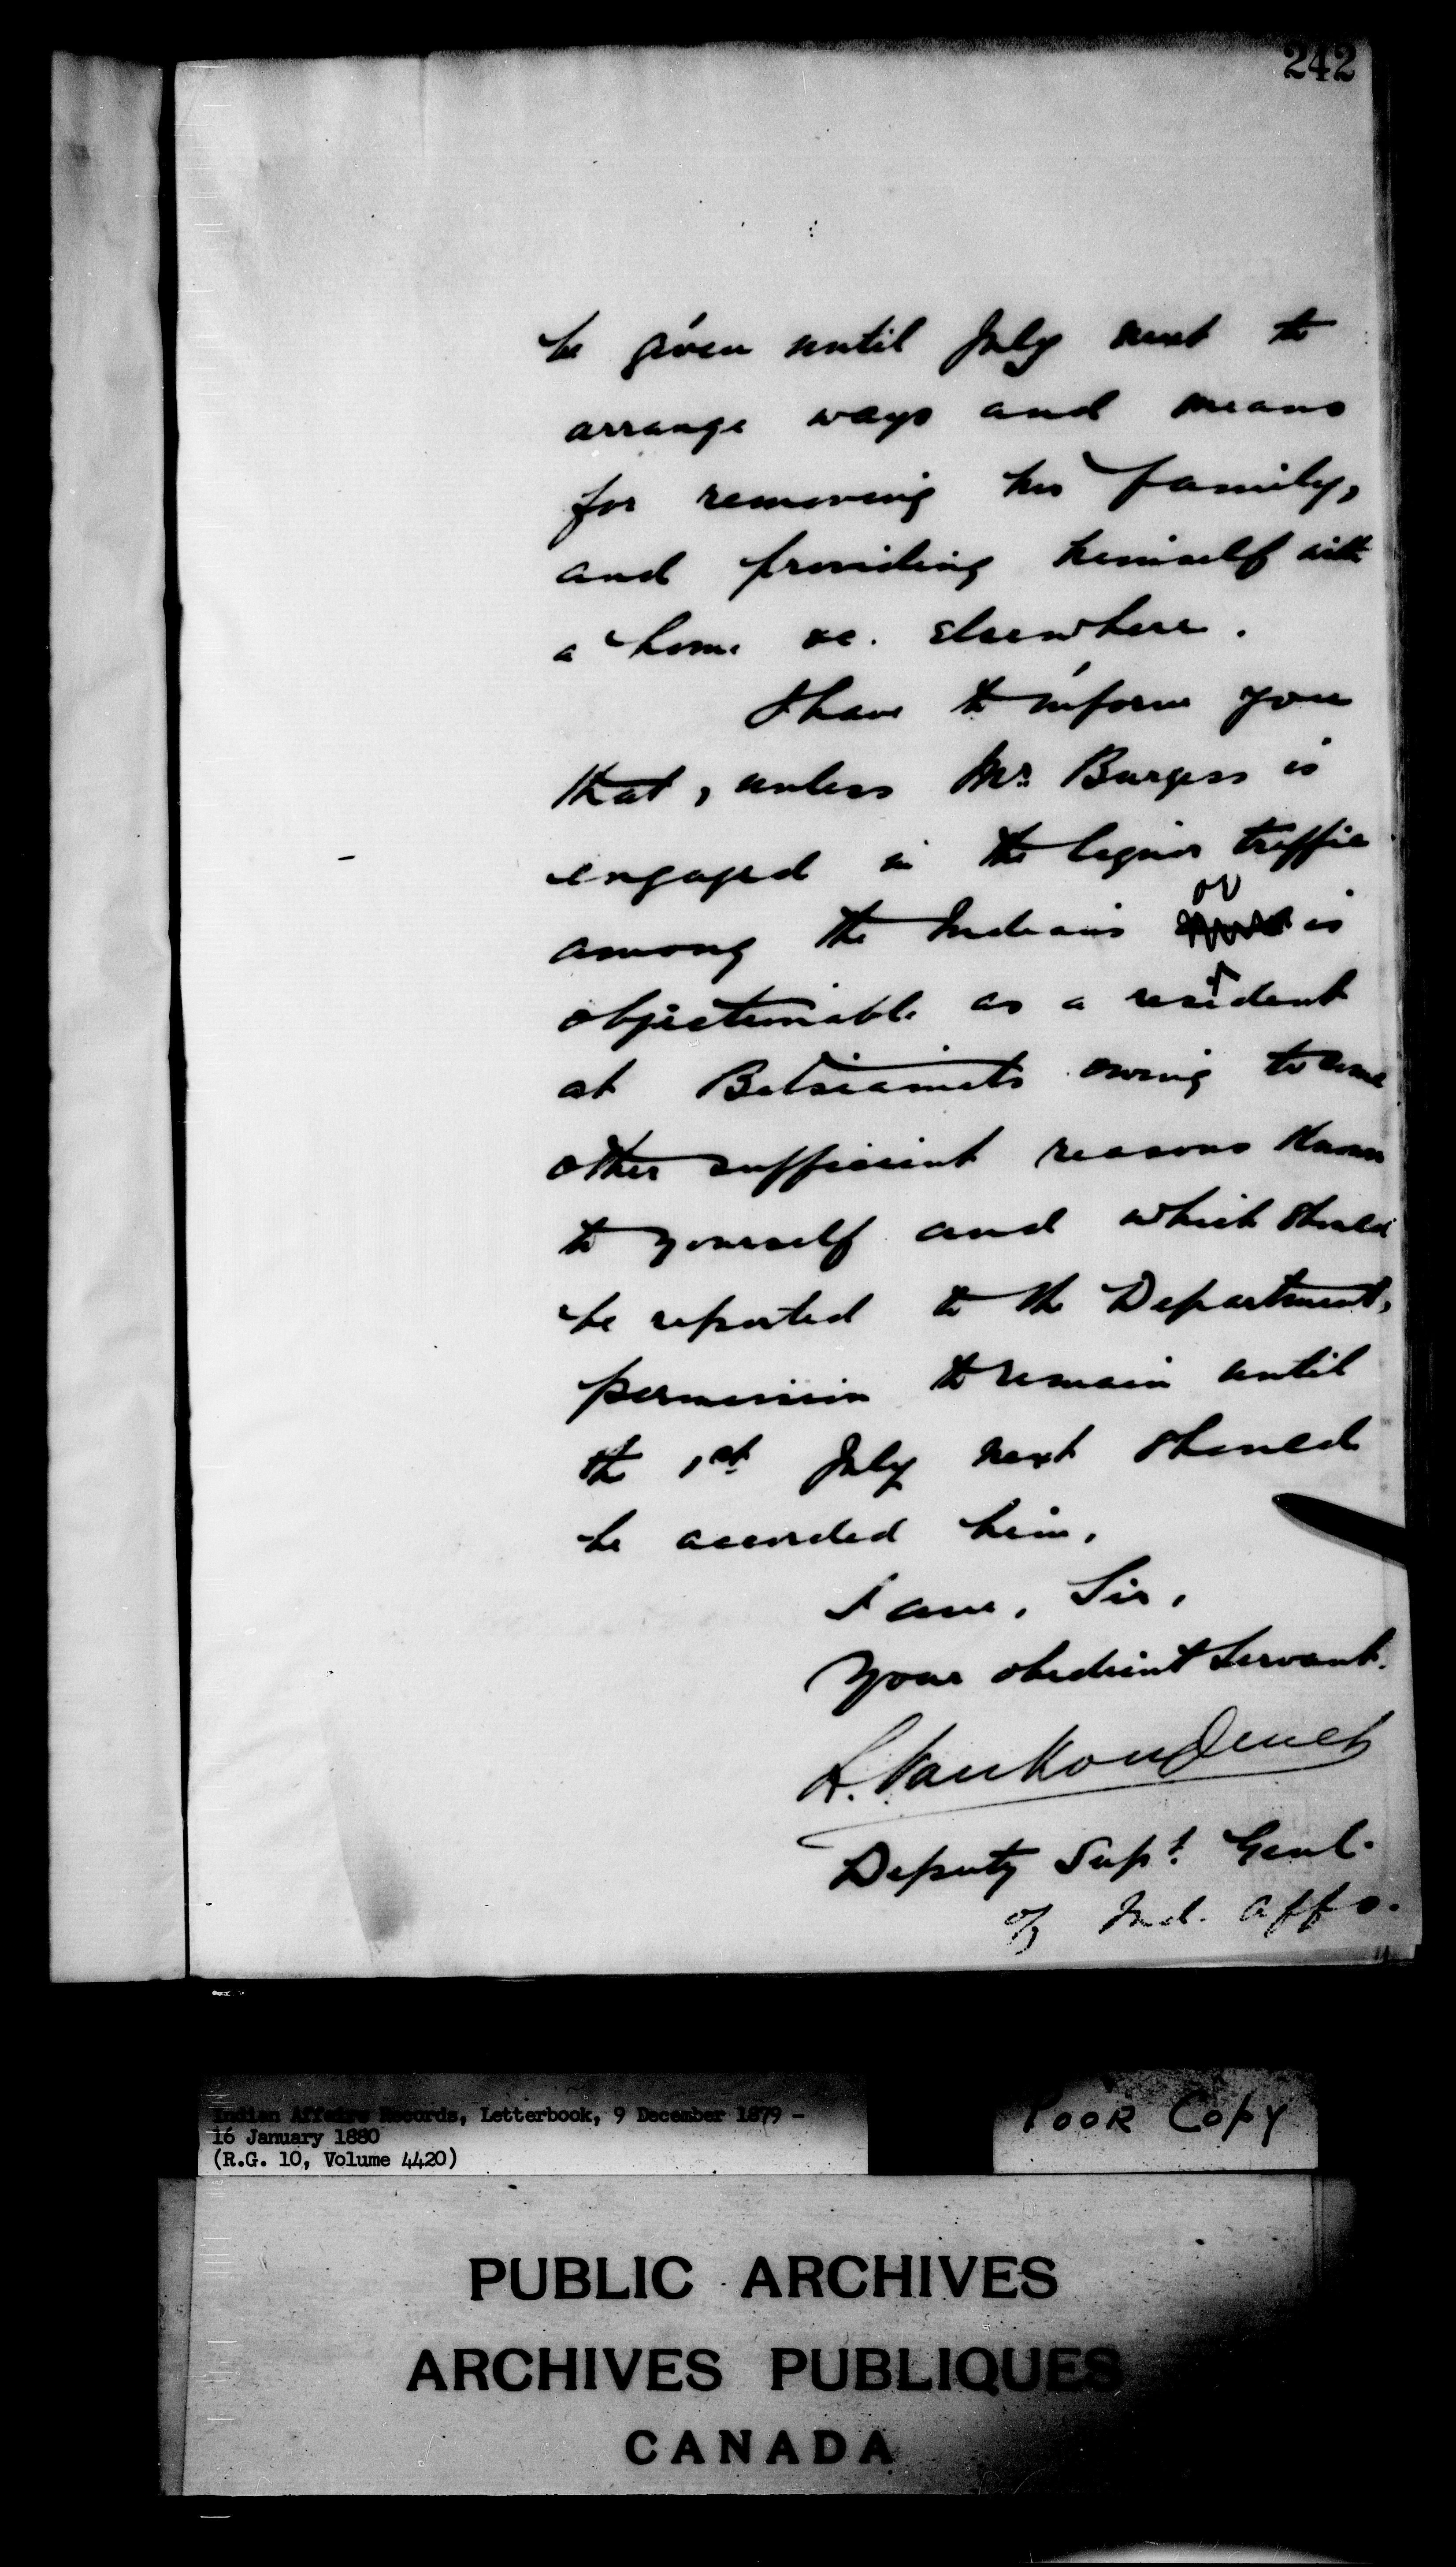 242
be given until July next to
arrange ways and means
for removing his family,
and providing himself with
a home &c. elsewhere.
I have to inform you
that, unless Mr. Burgess is
engaged in the liquor traffic
or
among the Indians is
objectionable as a resident
at Betsiamits owing to some
other sufficient reasons known
to yourself and which should
be reported to the Department,
permission to remain until
the 1st July next should
be accorded him.
I am, Sir,
Your obedient Servant.
L. VanKoughnet
Deputy Supt. Genl.
of Ind. Affs.
Indian Affairs Records, Letterbook, 9 December 1879 -
16 January 1880
(R.G. 10, Volume 4420)
POOR COPY
PUBLIC ARCHIVES
ARCHIVES PUBLIQUES
CANADA